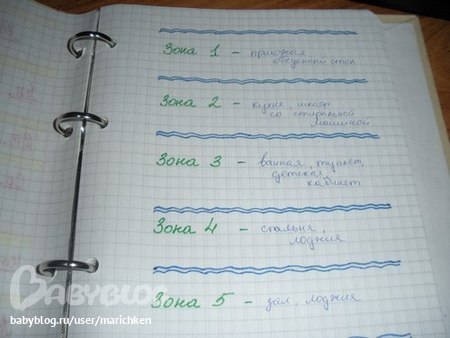 Зона 1 – прихожая,
обеденный стол
Зона 2 – кухня, шкаф
со стиральной
машиной
Зона 3 – ванная, туалет,
детская
кабинет
Зона 4 – спальня,
лоджия
Зона 5 – зал, лоджия
BABYBLOG
babyblog.ru/user/marichken